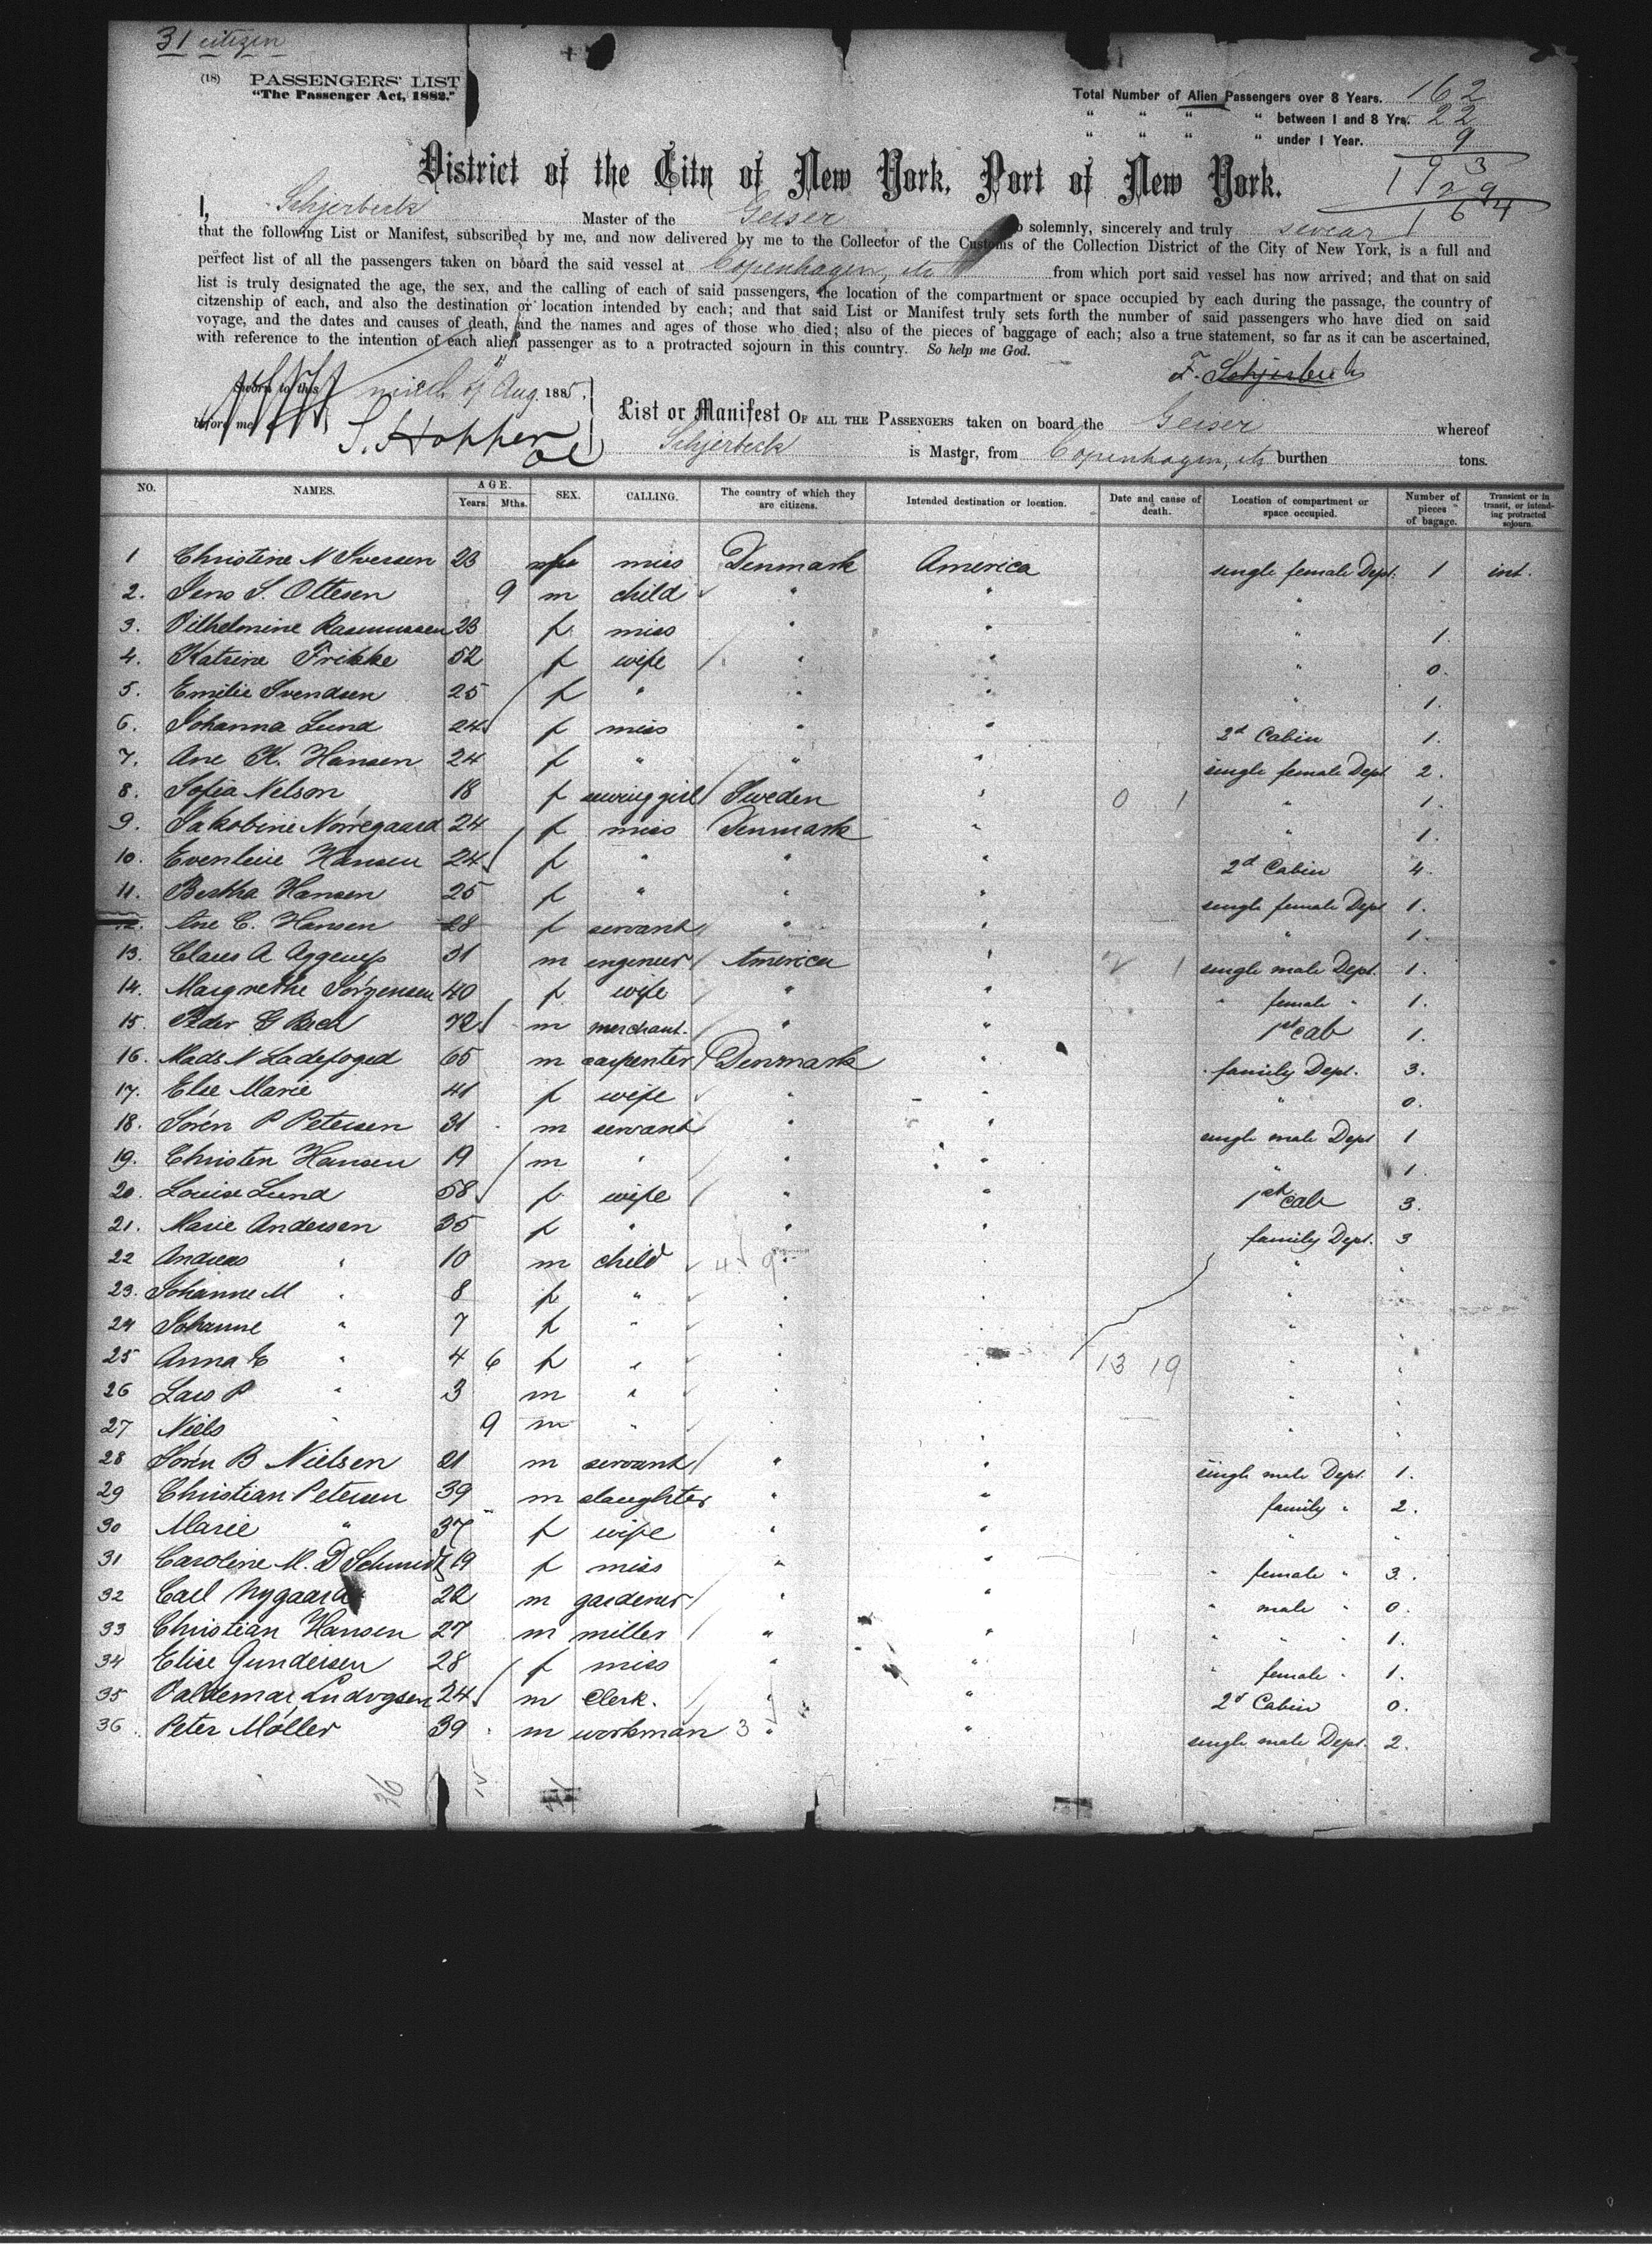 31 citizen
(18) PASSENGERS' LIST
"The Passenger Act, 1882."
Total Number of Alien Passengers over 8 Years. 162
" " " " between 1 and 8 Yrs. 22
" " " " under 1 Year. 9
193
District of the City of New York, Port of New York.
I, Schjerbeck Master of the Geiser do solemnly, sincerely and truly swear
that the following List or Manifest, subscribed by me, and now delivered by me to the Collector of the Customs of the Collection District of the City of New York, is a full and
perfect list of all the passengers taken on board the said vessel at Copenhagen, etc from which port said vessel has now arrived; and that on said
list is truly designated the age, the sex, and the calling of each of said passengers, the location of the compartment or space occupied by each during the passage, the country of
citzenship of each, and also the destination or location intended by each; and that said List or Manifest truly sets forth the number of said passengers who have died on said
voyage, and the dates and causes of death, and the names and ages of those who died; also of the pieces of baggage of each; also a true statement, so far as it can be ascertained,
with reference to the intention of each alien passenger as to a protracted sojourn in this country. So help me God.
F. Schjerbeck
Sworn to this Aug. 188
before me S. Hopper
List or Manifest OF ALL THE PASSENGERS taken on board the Geiser whereof
Schjerbeck is Master, from Copenhagen, etc burthen tons.
NO. NAMES. AGE. Years. Mths. SEX. CALLING. The country of which they are citizens. Intended destination or location. Date and cause of death. Location of compartment or space occupied. Number of pieces of bagage. Transient or in transit, or intending protracted sojourn.
1 Christine N Iversen 23 miss Denmark America single female Dept. 1 int.
2. Jens S. Ottesen 9 m child " " "
3. Vilhelmine Rasmussen 23 f. miss " " " 1.
4. Katrine Frikke 52 f wife " " " 0.
5. Emilie Svendsen 25 f " " " " 1.
6. Johanna Lund 24 f miss " " 2d Cabin 1.
7. Ane K. Hansen 24 f " " " single female Dept 2.
8. Sofia Nelson 18 f sewing girl Sweden " 0 1 " 1.
9. Jakobine Norregaard 24 f miss Denmark " " 1.
10. Evenline Hansen 24 f " " " 2d Cabin 4.
11. Bertha Hansen 25 f " " " single female Dept 1.
12. Ane C. Hansen 28 f servant " " " 1.
13. Claus A Aggerup 31 m engeneer America " 1 single male Dept. 1.
14. Margrethe Jörgensen 40 f wife " " " female " 1.
15. Peder G Bech 72 m merchant. " " 1st cab 1.
16. Mads N Ladefoged 65 m carpenter Denmark " family Dept. 3.
17. Else Marie 41 f wife " " " 0.
18. Sören P Petersen 31 m servant " " single male Dept 1
19. Christen Hansen 19 m " " " " 1.
20. Louise Lund 58 f wife " " 1st cab 3.
21. Marie Andersen 35 f " " " family Dept. 3
22 Andreas " 10 m child " " " "
23. Johanne M " 8 f " " " " "
24 Johanne " 7 f " " " " "
25 Anna E " 4 6 f " " " 13 19 " "
26 Lars P " 3 m " " " " "
27 Niels " 9 m " " " " "
28 Sören B Nielsen 21 m servant " " single male Dept. 1.
29 Christian Petersen 39 m slaughter " " family " 2.
30 Marie " 37 f wife " " " "
31 Caroline M. D Schmidt 19 f miss " " " female " 3.
32 Carl Nygaard 22 m gardener " " " male " 0.
33 Christian Hansen 27 m miller " " " " " 1.
34 Elise Gundersen 28 f miss " " " female " 1.
35 Valdemar Ludvigsen 24 m Clerk. " " 2d Cabin 0.
36 Peter Möller 39 m workman 3 " " single male Dept. 2.
36